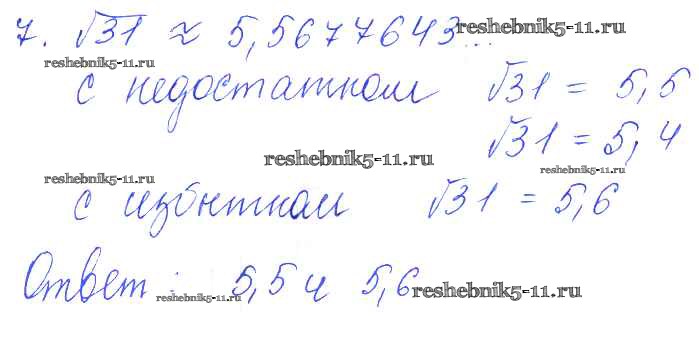 7. √31 ≈ 5,5677643...
reshebnik5-11.ru
reshebnik5-11.ru
с недостатком √31 = 5,5
√31 = 5,4
reshebnik5-11.ru
reshebnik5-11.ru
reshebnik5-11.ru
с избытком √31 = 5,6
Ответ: 5,5 и 5,6
reshebnik5-11.ru
reshebnik5-11.ru